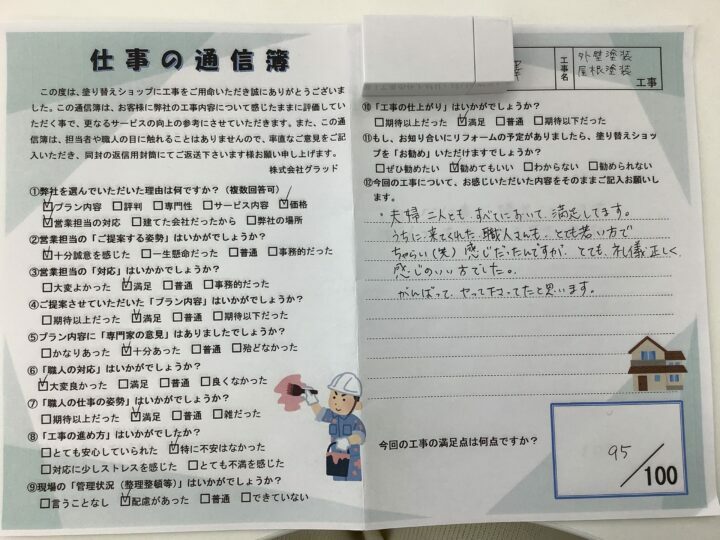 仕事の通信簿
この度は、塗り替えショップに工事をご用命いただき誠にありがとうございま
した。この通信簿は、お客様に弊社の工事内容について感じたままに評価してい
ただく事で、更なるサービスの向上の参考にさせていただきます。また、この通
信簿は、担当者や職人の目に触れることはありませんので、率直なご意見をご記
入いただき、同封の返信用封筒にてご返送下さいます様お願い申し上げます。
株式会社グラッド
①弊社を選んでいただいた理由は何ですか？（複数回答可）
☑プラン内容 □評判 □専門性 □サービス内容 ☑価格
☑営業担当の対応 □建てた会社だったから □弊社の場所
②営業担当の「ご提案する姿勢」はいかがでしょうか？
☑十分誠意を感じた □一生懸命だった □普通 □事務的だった
③営業担当の「対応」はいかかでしょうか？
□大変よかった ☑満足 □普通 □事務的だった
④ご提案させていただいた「プラン内容」はいかがでしょうか？
□期待以上だった ☑満足 □普通 □期待以下だった
⑤プラン内容に「専門家の意見」はありましたでしょうか？
□かなりあった ☑十分あった □普通 □殆どなかった
⑥「職人の対応」はいかがでしょうか？
☑大変良かった □満足 □普通 □良くなかった
⑦「職人の仕事の姿勢」はいかがでしょうか？
□期待以上だった ☑満足 □普通 □雑だった
⑧「工事の進め方」はいかがでしたか？
□とても安心していられた ☑特に不安はなかった
□対応に少しストレスを感じた □とても不満を感じた
⑨現場の「管理状況（整理整頓等）」はいかがでしょうか？
□言うことなし ☑配慮があった □普通 □できていない
工事名 外壁塗装
屋根塗装 工事
⑩「工事の仕上がり」はいかがでしょうか？
□期待以上だった ☑満足 □普通 □期待以下だった
⑪もし、お知り合いにリフォームの予定がありましたら、塗り替えショッ
プを「お勧め」いただけますでしょうか？
□ぜひ勧めたい ☑勧めてもいい □わからない □勧められない
⑫今回の工事について、お感じいただいた内容をそのままご記入お願いし
ます。
・夫婦二人とも、すべてにおいて、満足してます。
うちに来てくれた職人さんも、とても若い方で
ちゃらい(笑)感じだったんですが、とても、礼儀正しく、
感じのいい方でした。
がんばって、やって下さってたと思います。
今回の工事の満足点は何点ですか？
95／100